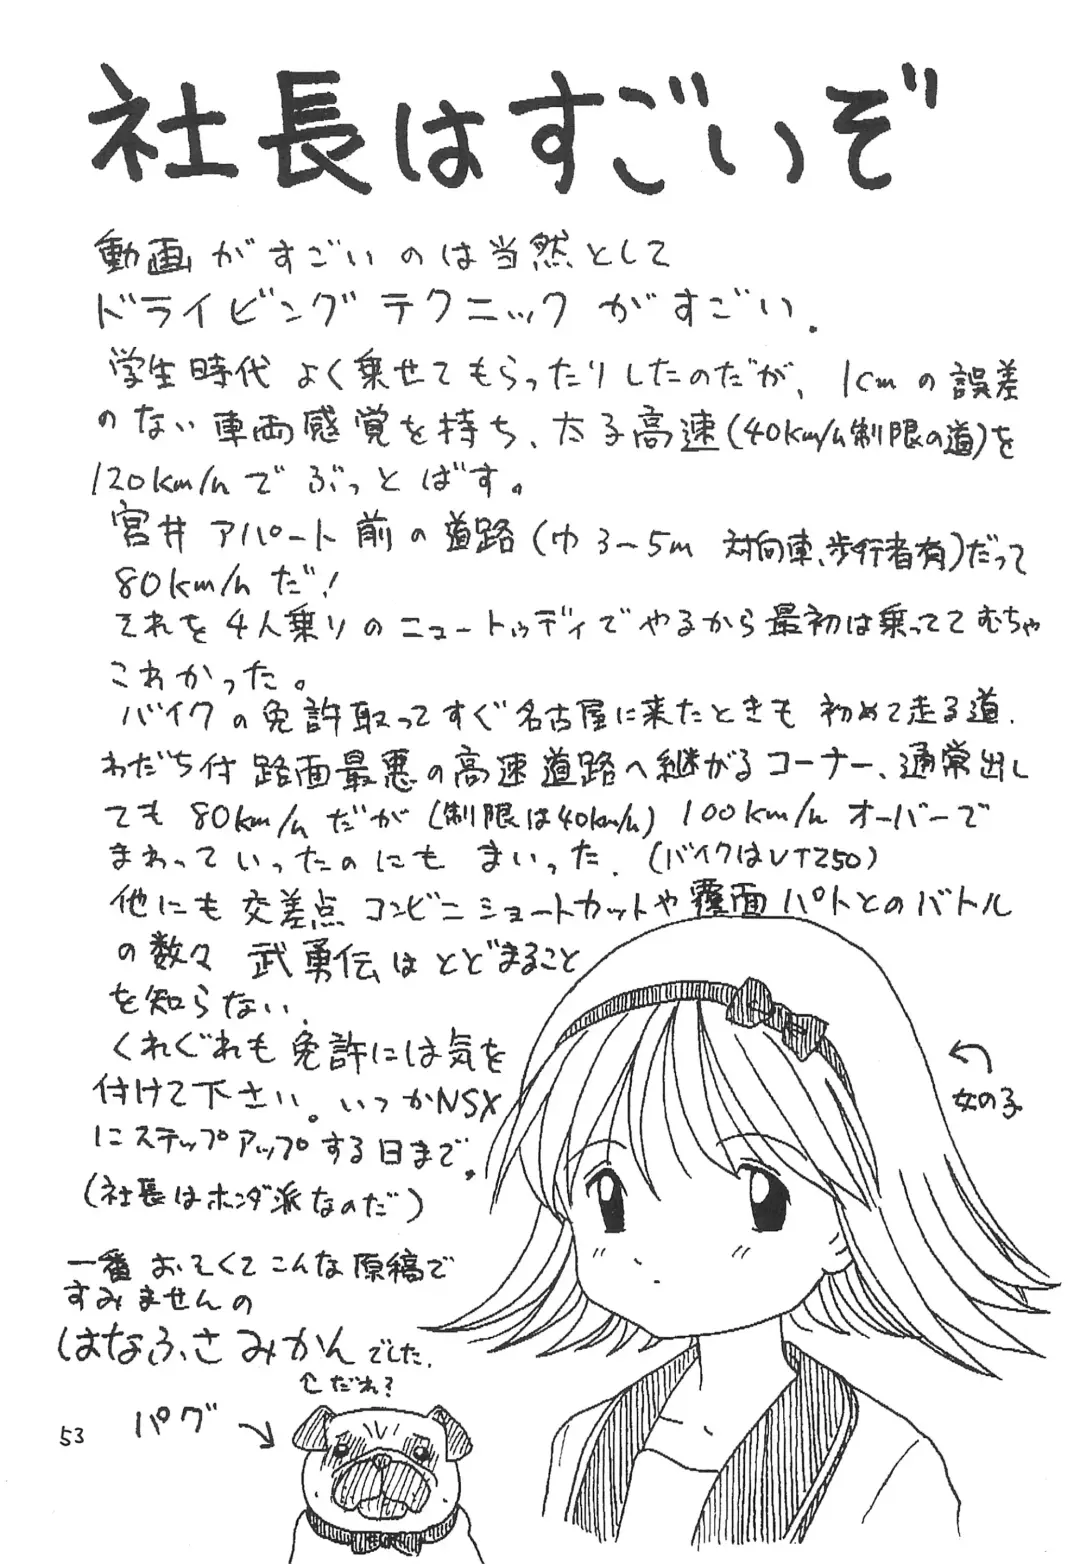 社長はすごいぞ
動画がすごいのは当然として
ドライビングテクニックがすごい.
学生時代 よく乗せてもらったりしたのだが、1cmの誤差
のない車両感覚を持ち、太子高速(40km/h制限の道)を
120km/hでぶっとばす。
宮井アパート前の道路(巾3~5m 対向車、歩行者有)だって
80km/hだ!
それを4人乗りのニュートゥディでやるから最初は乗っててむちゃ
こわかった。
バイクの免許取ってすぐ名古屋に来たときも 初めて走る道.
わだち付 路面最悪の高速道路へ継がるコーナー、通常出し
ても80km/hだが(制限は40km/h) 100km/hオーバーで
まわっていったのにも まいった.(バイクはVTZ50)
他にも 交差点コンビニショートカットや覆面パトとのバトル
の数々 武勇伝はとどまること
を知らない.
くれぐれも免許には気を
付けて下さい。いつかNSX
にステップアップする日まで.
(社長はホンダ派なのだ)
女の子
一番おそくてこんな原稿で
すみませんの
はなふさみかんでした.
だれ?
パグ
53